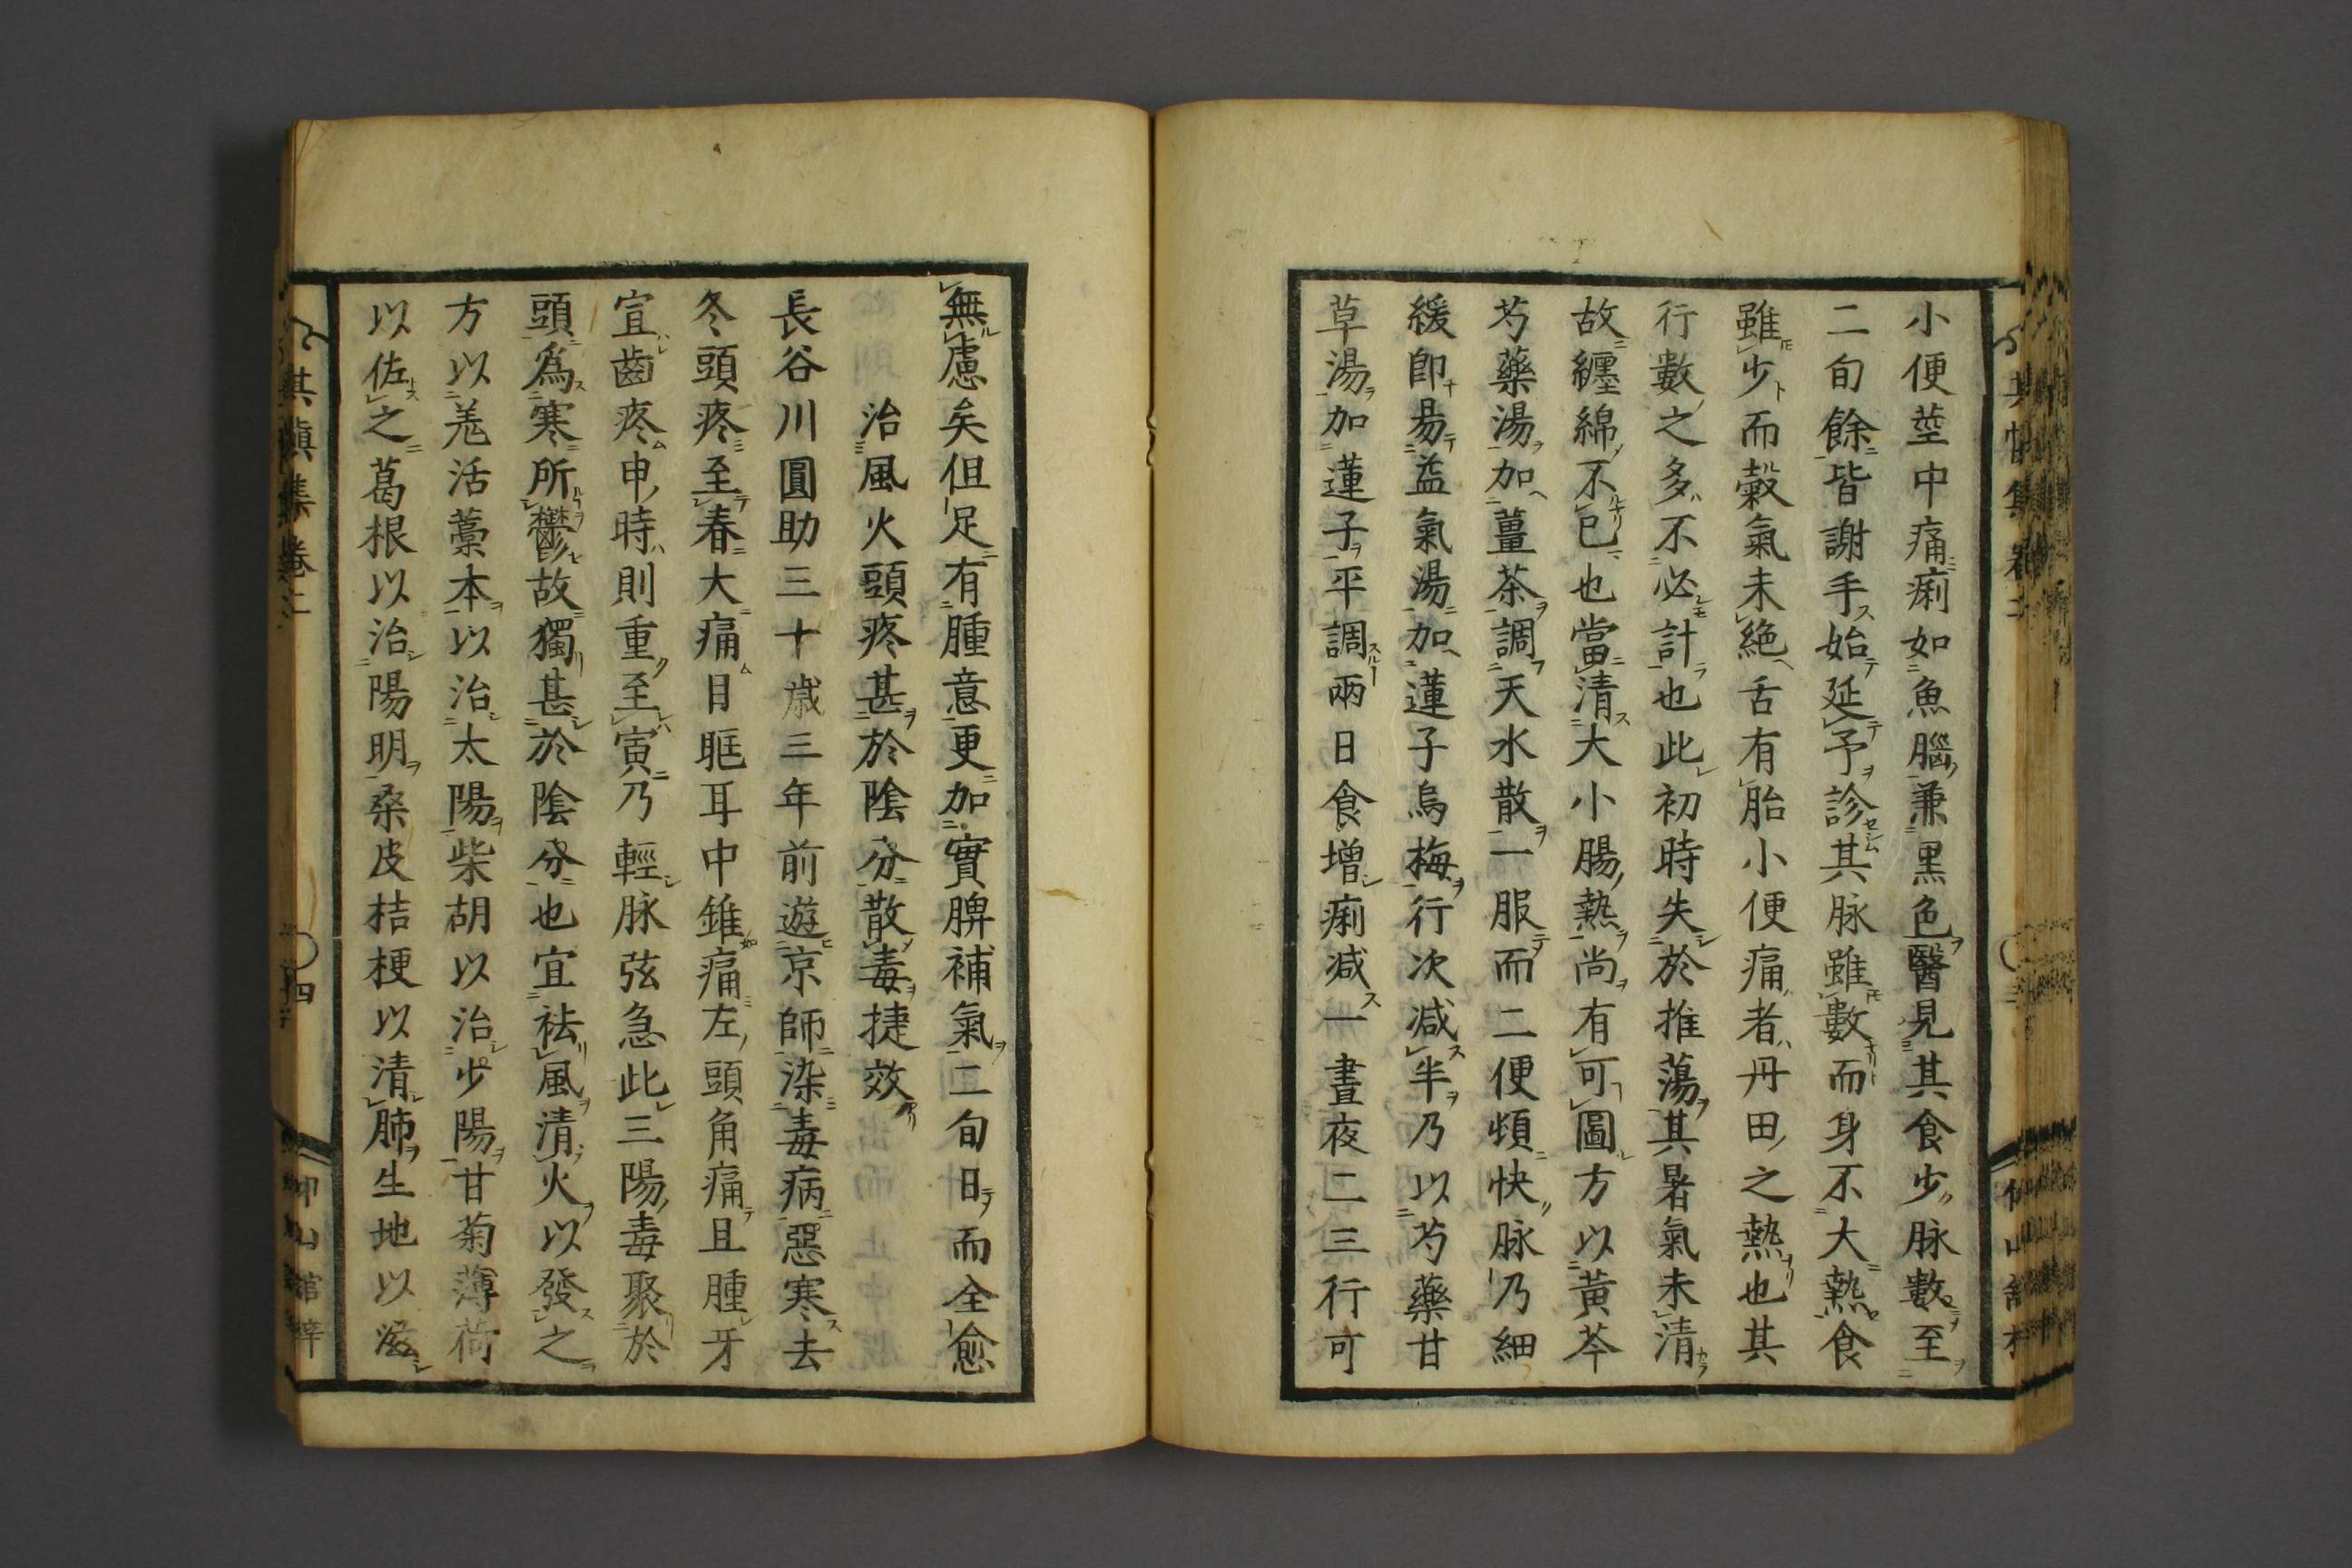 小便莖中痛痢如魚腦兼黑色醫見其食少脉數至
二旬餘皆謝手始延予診其脉雖數而身不大熱食
雖少而穀氣未絶舌有胎小便痛者丹田之熱也其
行數之多不必計也此初時失於推蕩其暑氣未清
故纏綿不已也當清大小腸熱尚有可圖方以黃芩
芍藥湯加薑茶調天水散一服而二便頓快脉乃細
緩即易益氣湯加蓮子烏梅行次减半乃以芍藥甘
草湯加蓮子平調兩日食增痢减一晝夜二三行可
無慮矣但足有腫意更加實脾補氣二旬日而全愈
治風火頭疼甚於陰分散毒捷效
長谷川圓助三十歳三年前遊京師染毒病惡寒去
冬頭疼至春大痛目眶耳中錐痛左頭角痛且腫牙
宣齒疼申時則重至寅乃輕脉弦急此三陽毒聚於
頭爲寒所鬱故獨甚於陰分也宜祛風清火以發之
方以羗活藁本以治太陽柴胡以治少陽甘菊薄荷
以佐之葛根以治陽明桑皮桔梗以清肺生地以滋
卷之二
四